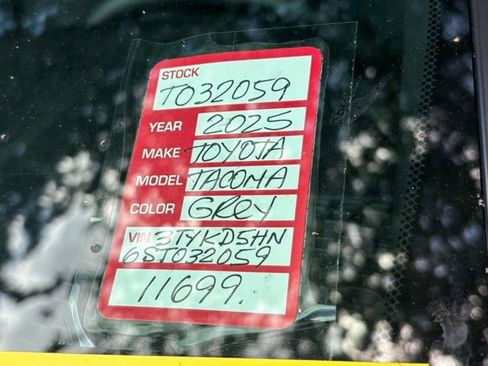 STOCK
T032059
YEAR 2025
MAKE TOYOTA
MODEL TACOMA
COLOR GREY
VIN 3TYKD5HN
6ST032059
11699.